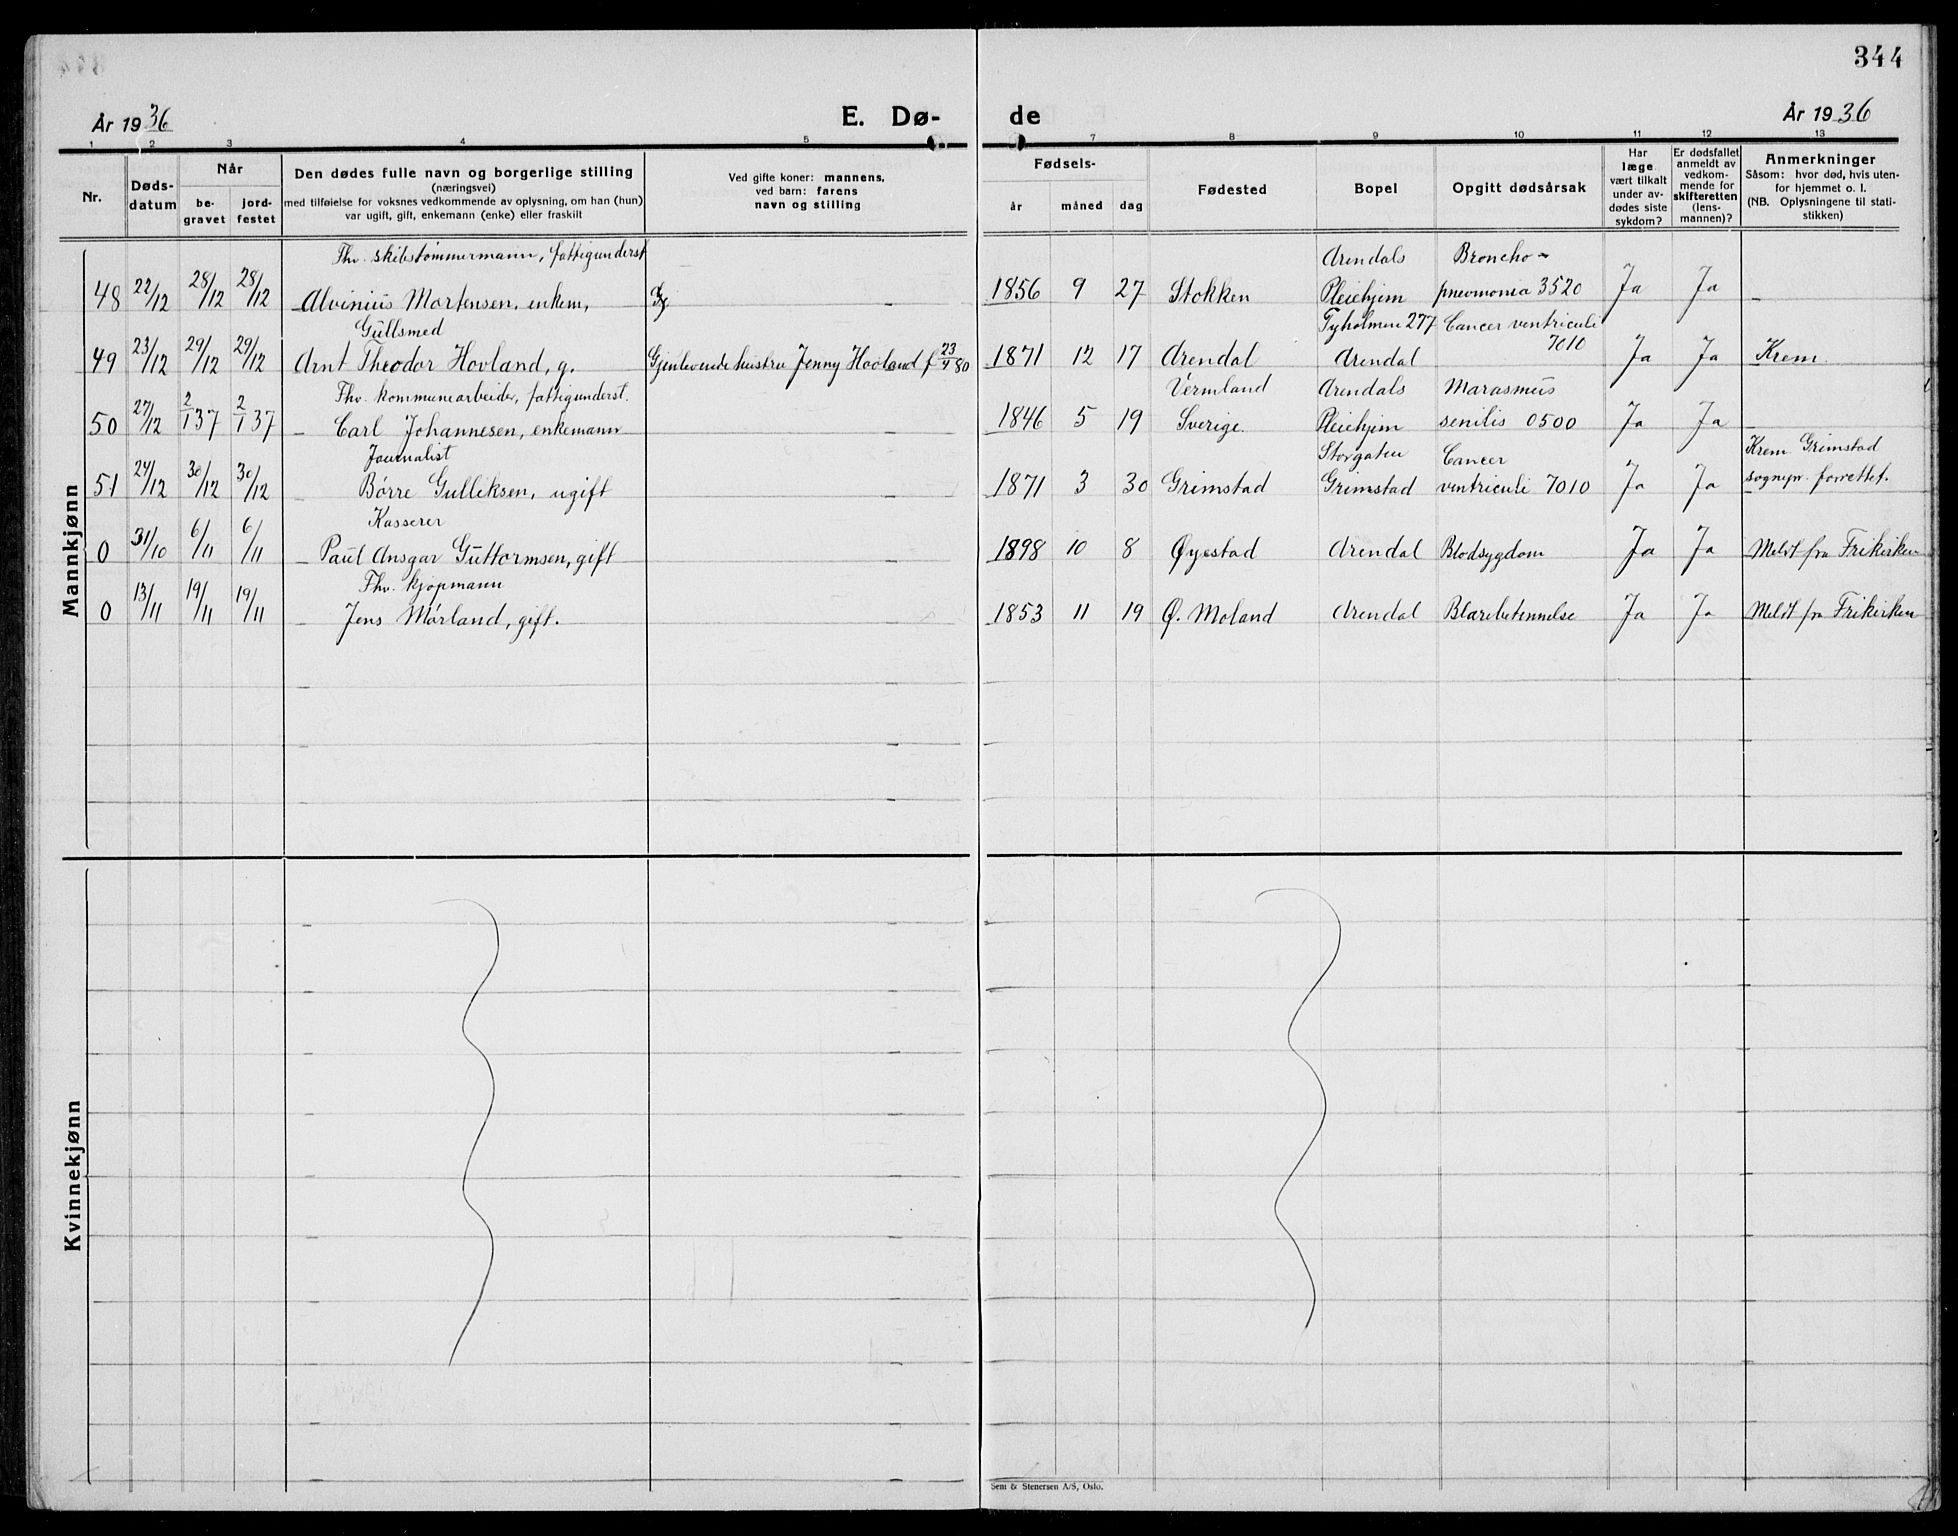 344
År 1936
E. Dø-
de
År 1936
1 2 3 4 5 7 8 9 10 11 12 13
Nr.
Døds-
datum
Når
be-
gravet
jord-
festet
Den dødes fulle navn og borgerlige stilling
(næringsvei)
med tilføielse for voksnes vedkommende av oplysning, om han (hun)
var ugift, gift, enkemann (enke) eller fraskilt
Ved gifte koner: mannens,
ved barn: farens
navn og stilling
Fødsels-
år måned dag
Fødested
Bopel
Opgitt dødsårsak
Har
læge
vært tilkalt
under av-
dødes siste
sykdom?
Er dødsfallet
anmeldt av
vedkom-
mende for
skifteretten
(lens-
mannen)?
Anmerkninger
Såsom: hvor død, hvis uten-
for hjemmet o. l.
(NB. Oplysningene til stati-
stikken)
Mannkjønn
Fhv. skibstømmermann, fattigunderst
Arendals Broncho-
48 22/12 28/12 28/12 Alvinius Mortensen, enkem, 1856 9 27 Stokken Pleiehjem pneumonia 3520 Ja Ja
Gullsmed Tyholmen 277 Cancer ventriculi
7010
49 23/12 29/12 29/12 Arnt Theodor Hovland, g. Gjenlevende hustru Jenny Hovland f 23/4 80 1871 12 17 Arendal Arendal Ja Ja Krem.
Fhv. kommunearbeider, fattigunderst. Vermland Arendals Marasmus
50 27/12 2/1 37 2/1 37 Carl Johannesen, enkemann 1846 5 19 Sverige. Pleiehjem senilis 0500 Ja Ja
Journalist Storgaten Cancer Krem. Grimstad
51 24/12 30/12 30/12 Børre Gulliksen, ugift 1871 3 30 Grimstad Grimstad ventriculi 7010 Ja Ja sognepr. forrettet.
Kasserer
0 31/10 6/11 6/11 Paul Ansgar Guttormsen, gift 1898 10 8 Øyestad Arendal Blodsygdom Ja Ja Meldt fra Frikirken
Fhv. kjøpmann
0 13/11 19/11 19/11 Jens Mørland, gift. 1853 11 19 Ø. Moland Arendal Blærebetennelse Ja Ja Meldt fra Frikirken
Kvinnekjønn
Sem & Stenersen A/S, Oslo.